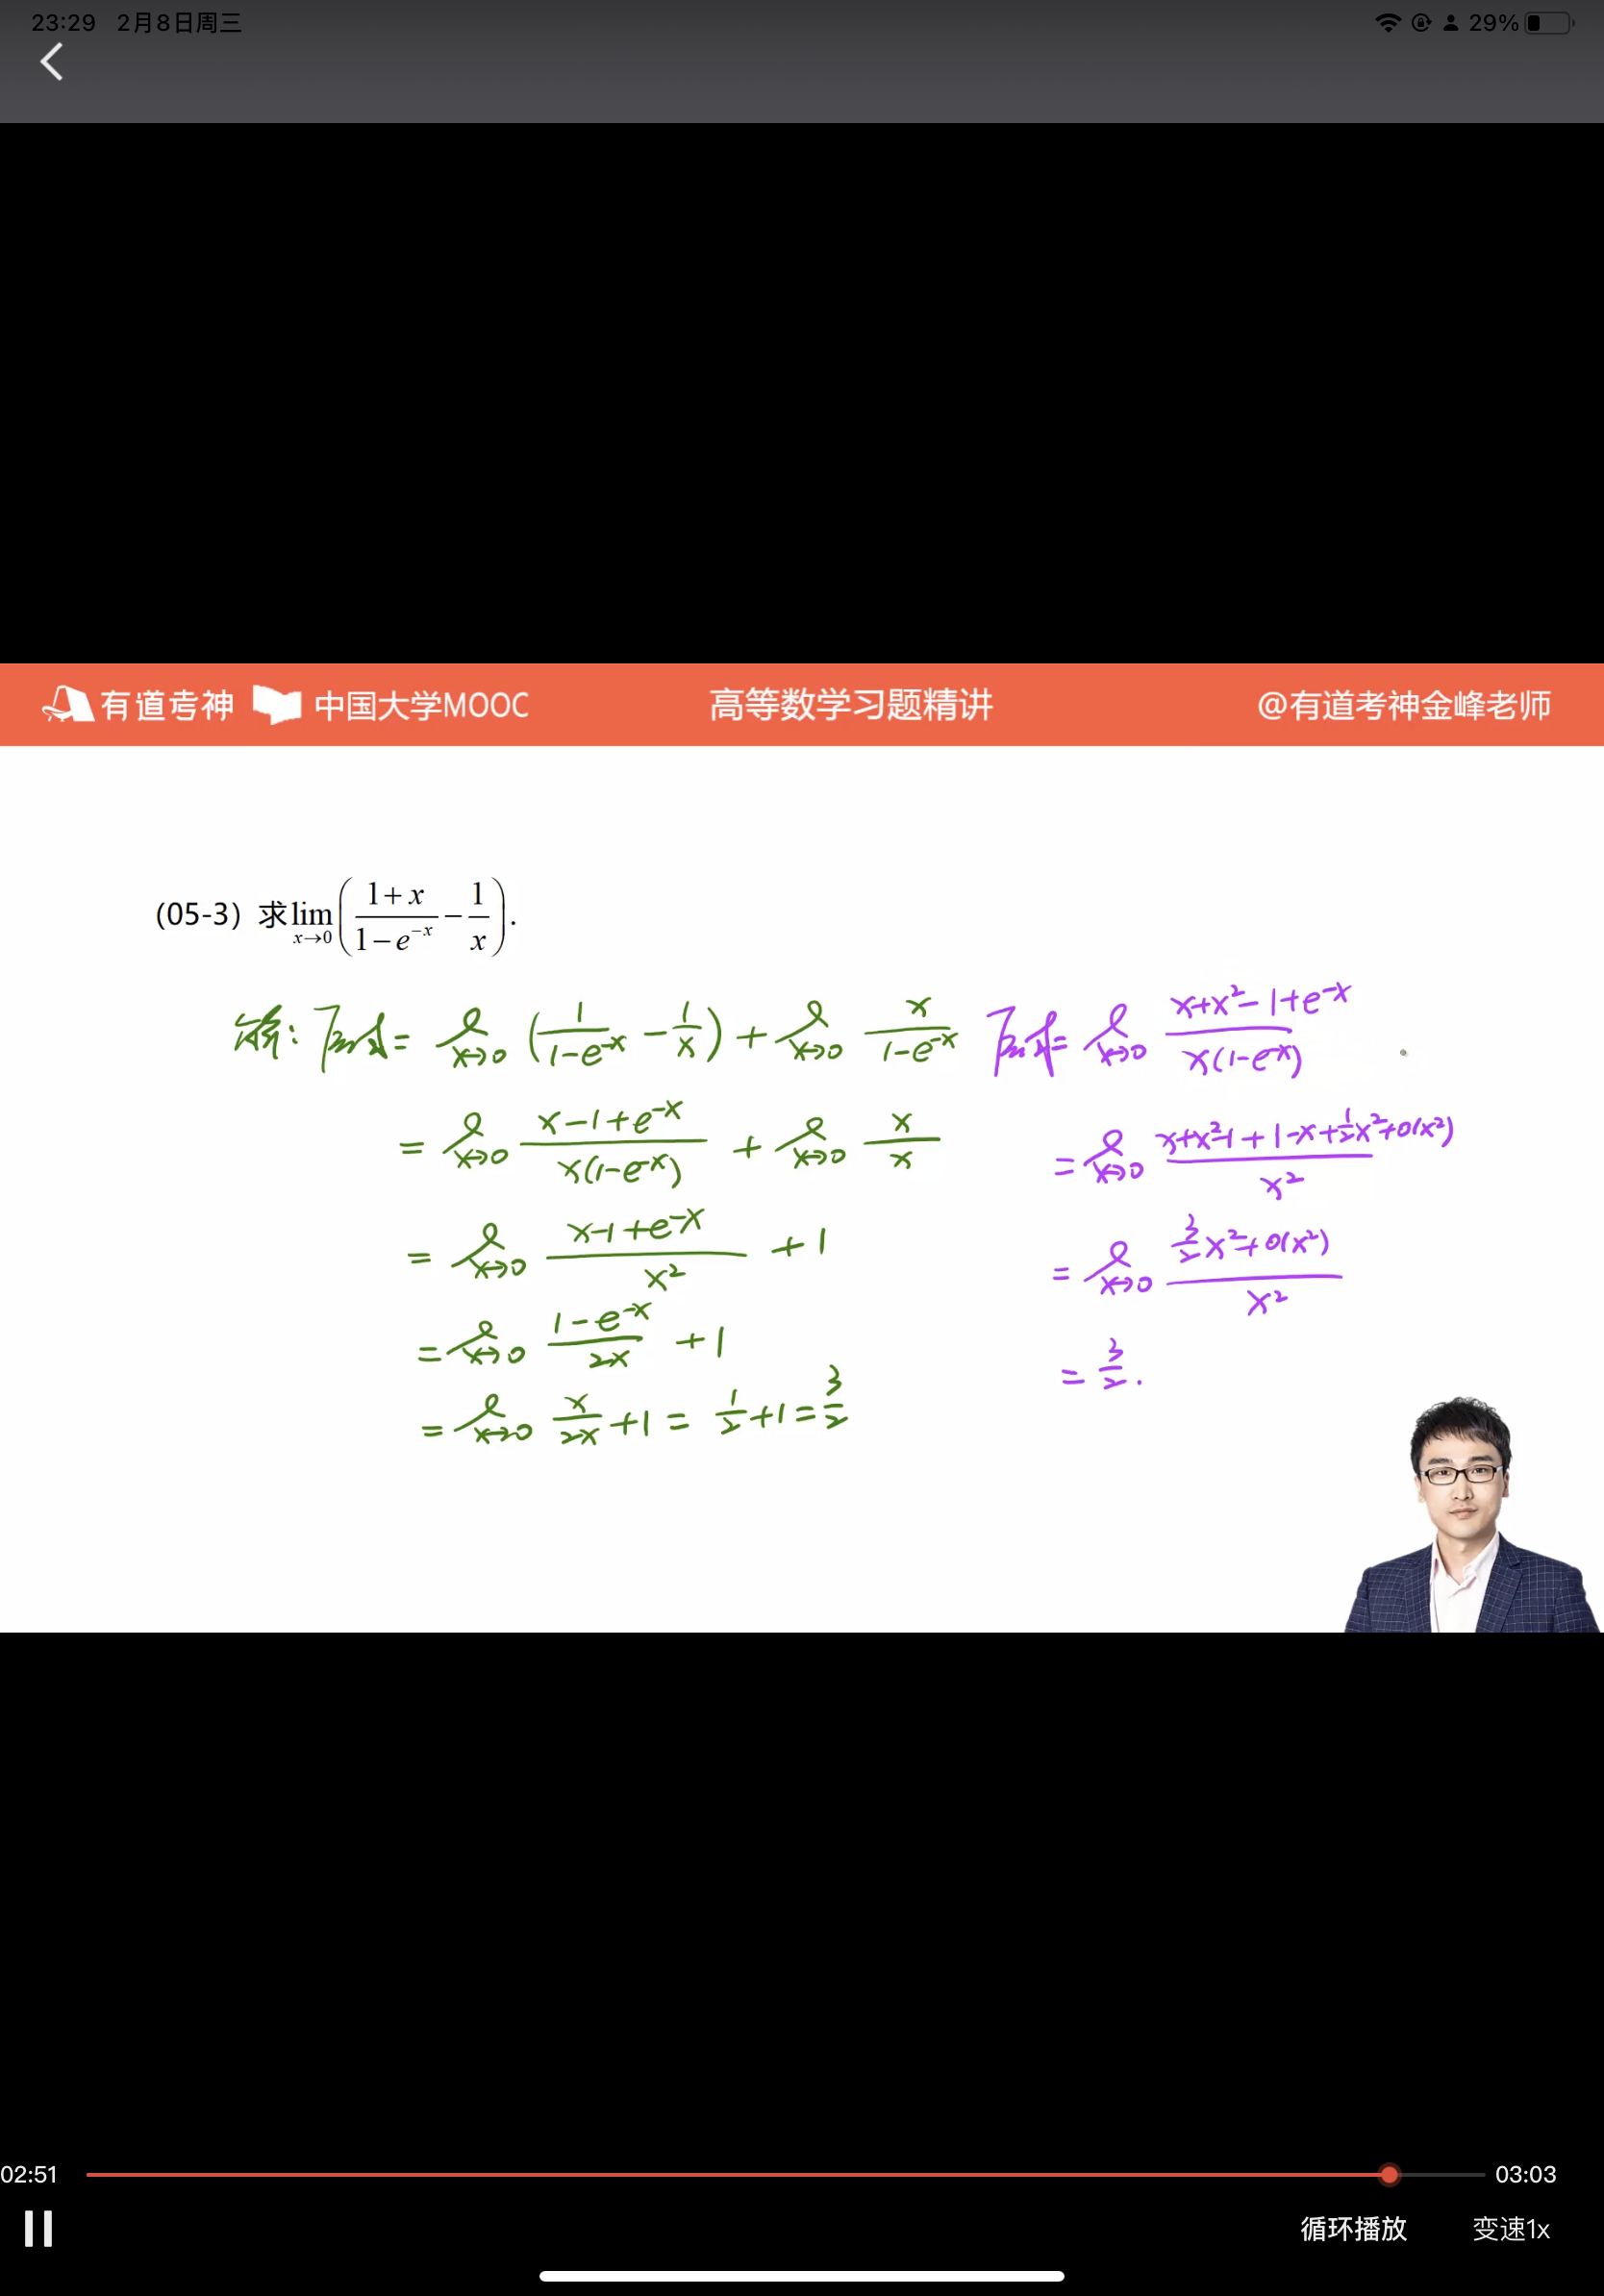 23:29 2月8日周三 29%
有道考神 中国大学MOOC 高等数学习题精讲 @有道考神金峰老师
(05-3) 求lim x→0 ( (1+x)/(1−e^{−x}) − 1/x ).
解: 原式= lim x→0 (1/(1-e^{-x}) - 1/x) + lim x→0 x/(1-e^{-x})
= lim x→0 (x-1+e^{-x})/(x(1-e^{-x})) + lim x→0 x/x
= lim x→0 (x-1+e^{-x})/x² + 1
= lim x→0 (1-e^{-x})/2x + 1
= lim x→0 x/2x + 1 = 1/2 + 1 = 3/2
原式= lim x→0 (x+x²-1+e^{-x})/(x(1-e^{-x}))
= lim x→0 (x+x²-1+1-x+1/2x²+o(x²))/x²
= lim x→0 (3/2x²+o(x²))/x²
= 3/2.
02:51 03:03
循环播放 变速1x